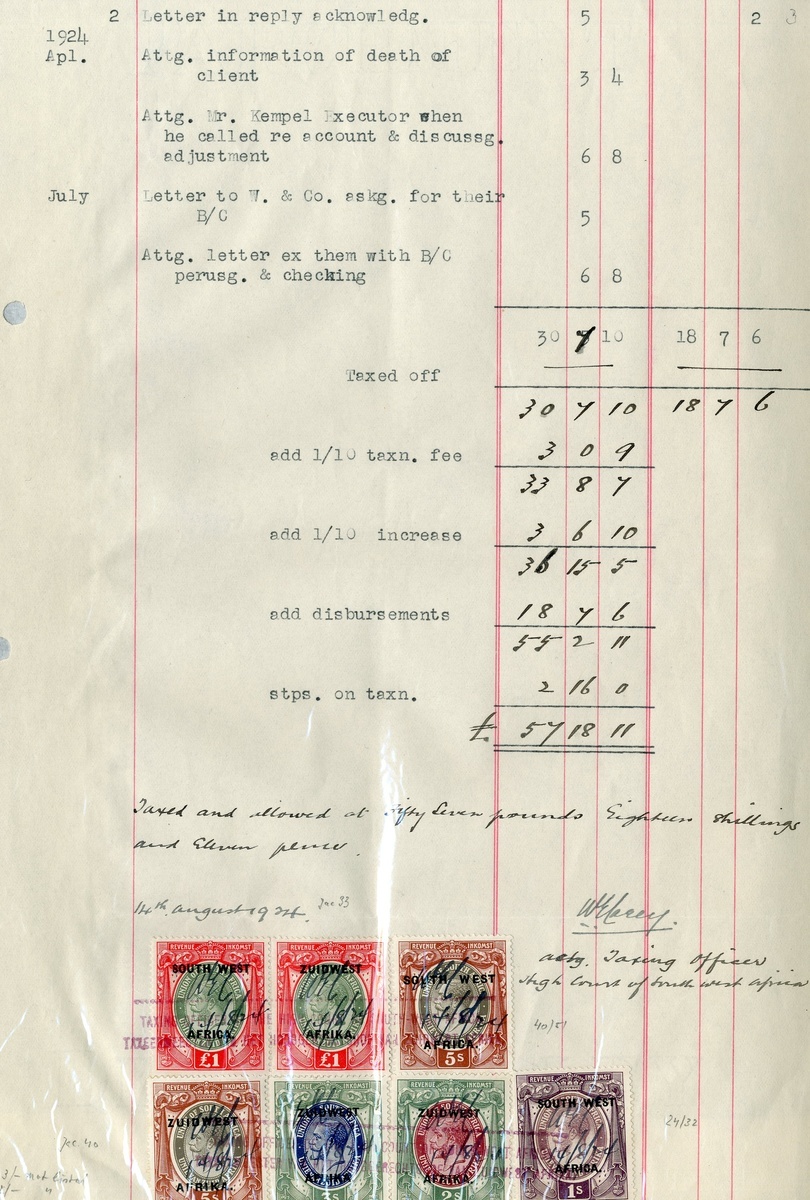 2 Letter in reply acknowledg. 5 2 3
1924
Apl. Attg. information of death of
client 3 4
Attg. Mr. Kempel Executor when
he called re account & discussg.
adjustment 6 8
July Letter to W. & Co. askg. for their
B/C 5
Attg. letter ex them with B/C
perusg. & checking 6 8
30 7 10 18 7 6
Taxed off
30 7 10 18 7 6
add 1/10 taxn. fee 3 0 9
33 8 7
add 1/10 increase 3 6 10
36 15 5
add disbursements 18 7 6
55 2 11
stps. on taxn. 2 16 0
£ 57 18 11
Taxed and allowed at Fifty Seven pounds Eighteen shillings
and Eleven pence.
14th August 1924.
actg. Taxing Officer
High Court of South West Africa
40/51
REVENUE INKOMST REVENUE INKOMST REVENUE INKOMST
SOUTH WEST ZUIDWEST SOUTH WEST
14/8/24 14/8/24 14/8/24
AFRICA. AFRIKA. AFRICA.
£1 £1 5s
REVENUE INKOMST REVENUE INKOMST REVENUE INKOMST REVENUE INKOMST
ZUIDWEST ZUIDWEST ZUIDWEST SOUTH WEST
14/8/24 14/8/24 14/8/24 14/8/24
AFRIKA. AFRIKA. AFRIKA. AFRICA.
5s 3s 2s 1s
24/32